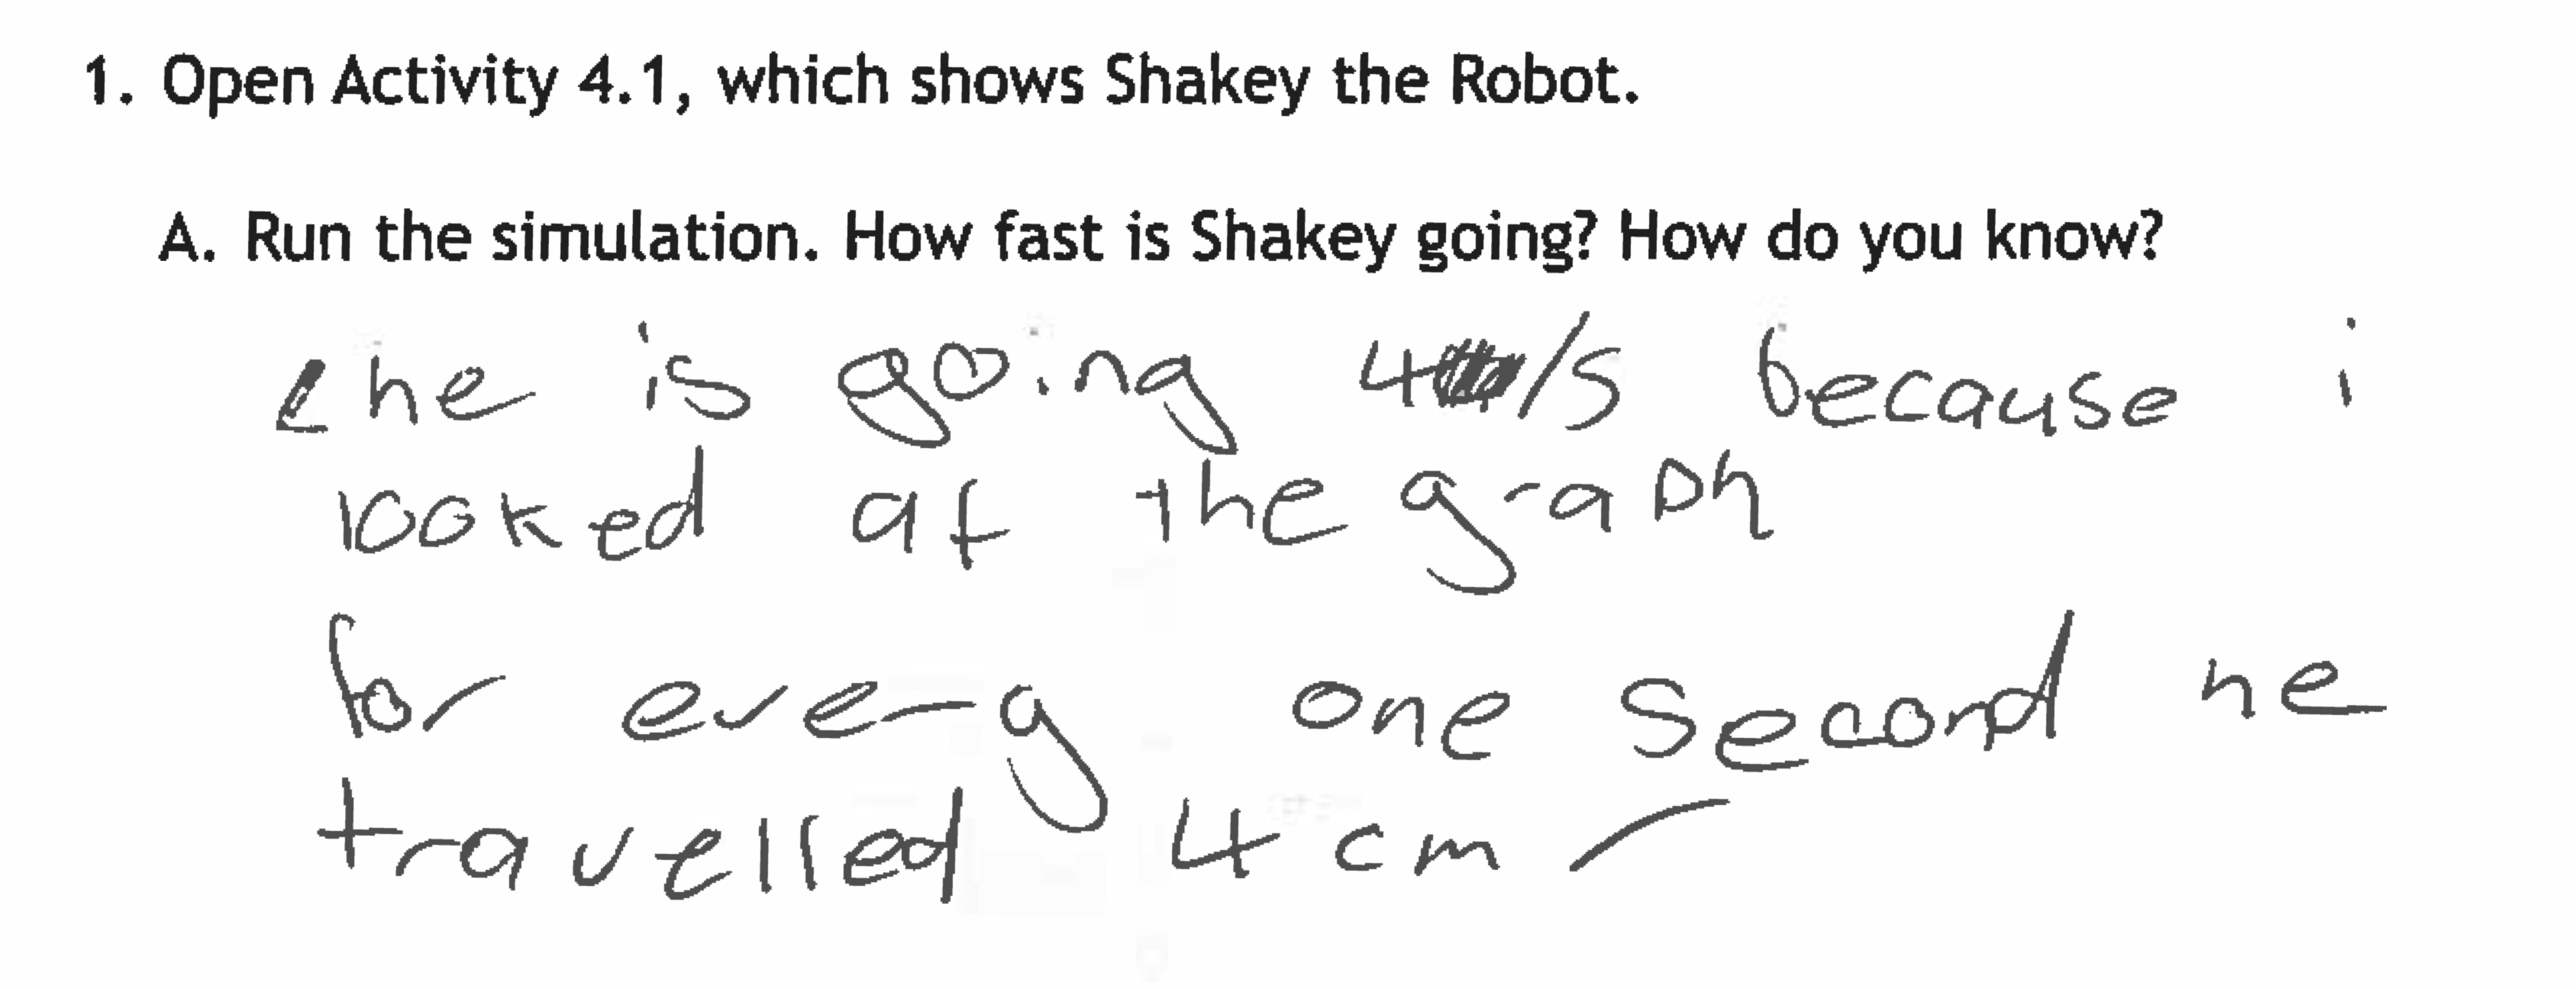 1. Open Activity 4.1, which shows Shakey the Robot.
A. Run the simulation. How fast is Shakey going? How do you know?
he is going 4 /s because i
looked at the graph
for every one second he
travelled 4 cm